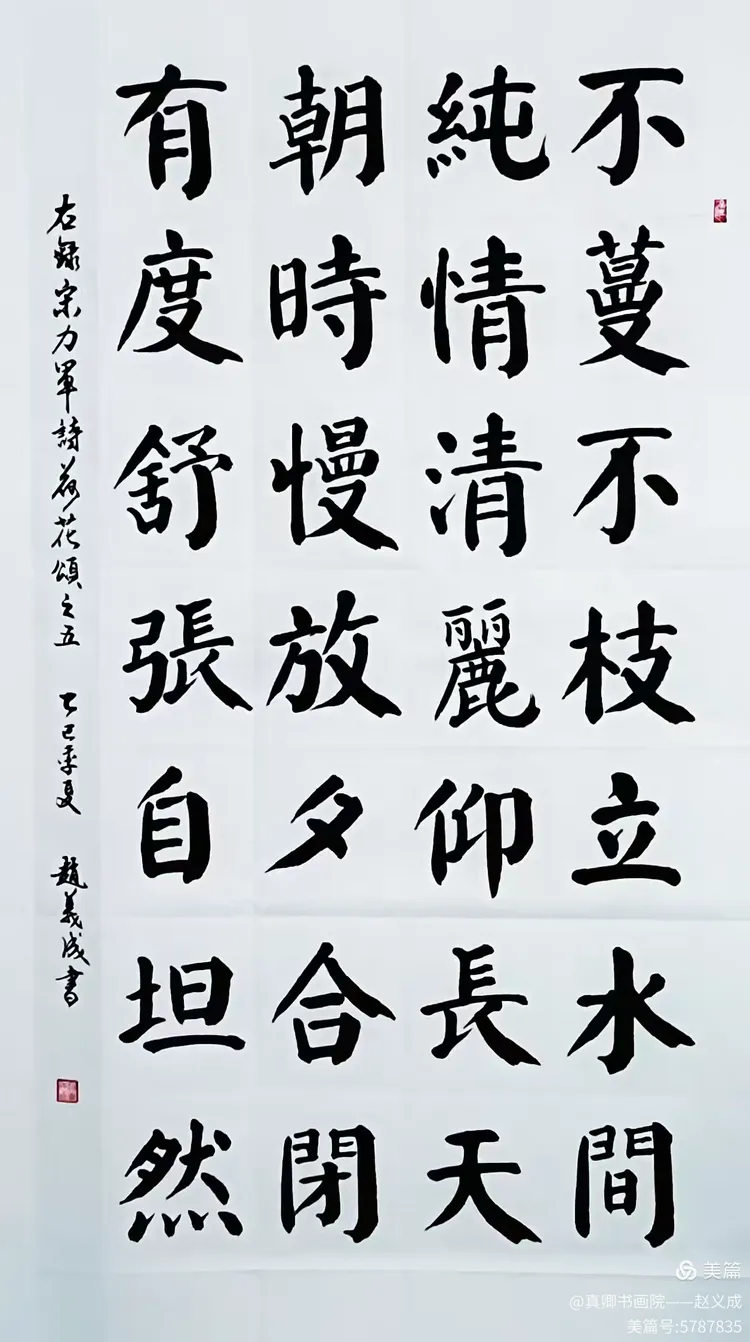 不蔓不枝立水間
純情清麗仰長天
朝時慢放夕合閉
有度舒張自坦然
右録宋力軍詩荷花頌之五 乙巳季夏 趙義成書
美篇
@真卿书画院——赵义成
美篇号:5787835